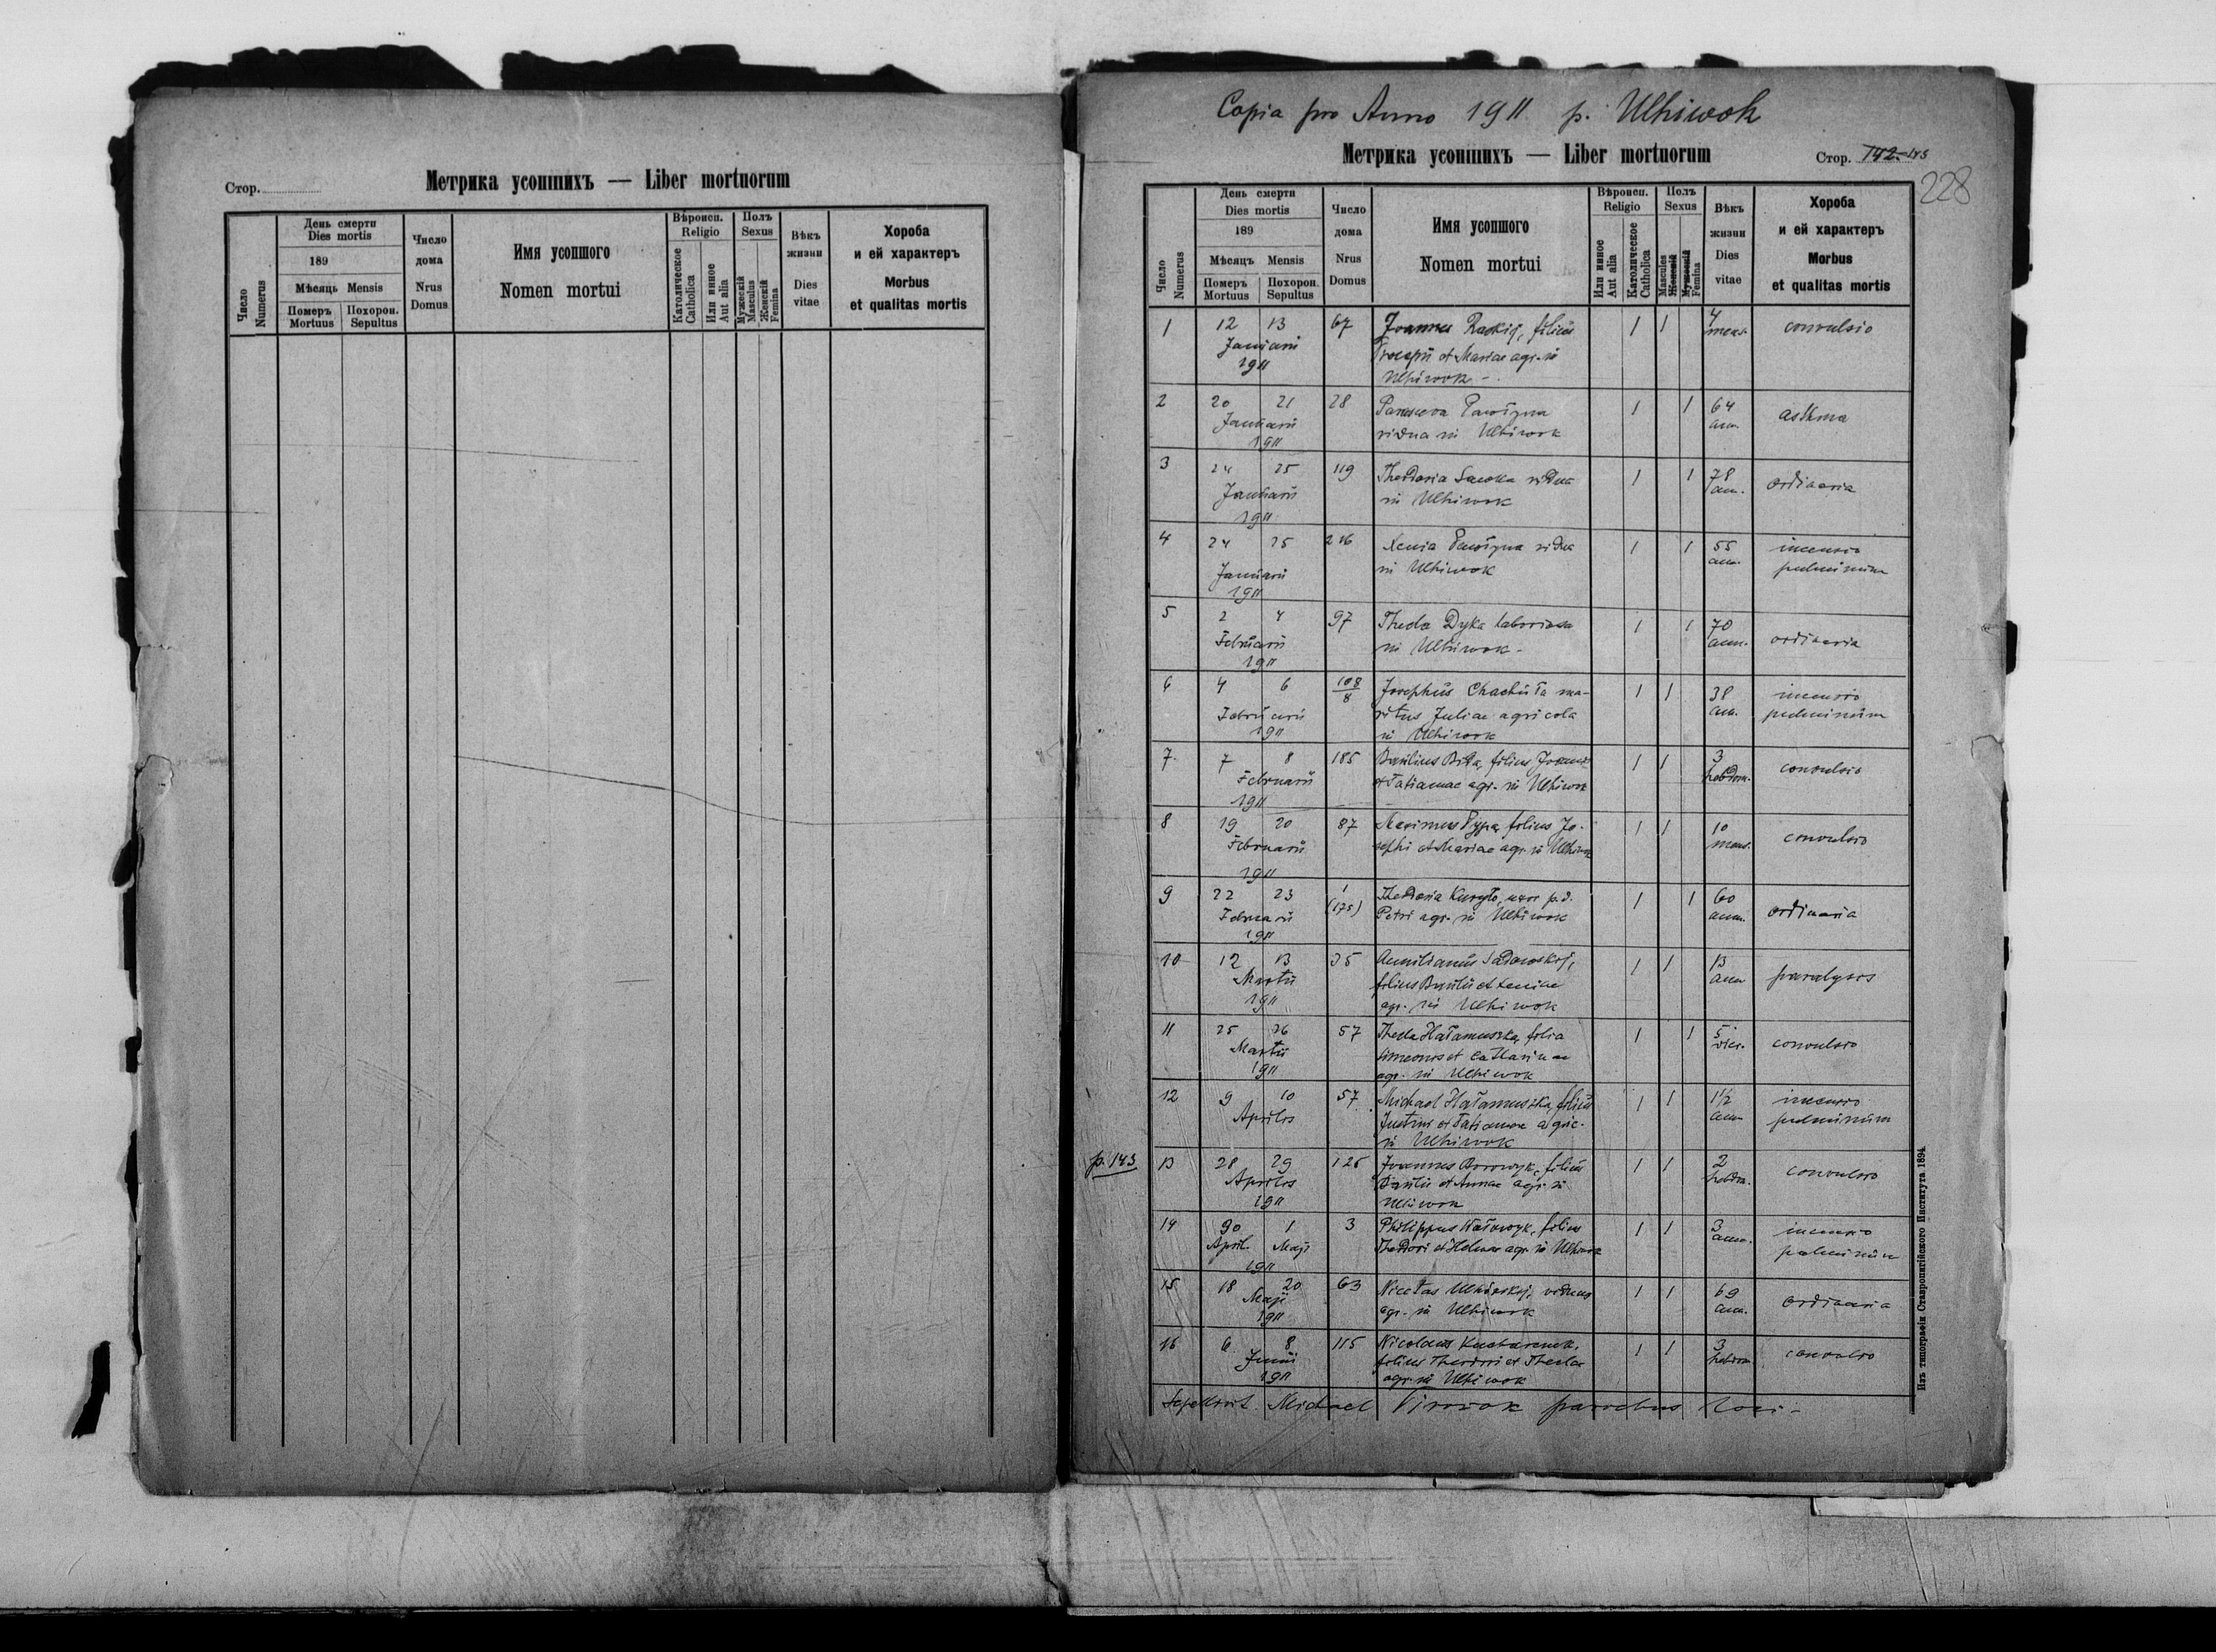 Стор.
Метрика усопшихъ — Liber mortuorum
Число
Numerus
День смерти
Dies mortis
189
Мѣсяць Mensis
Померъ
Mortuus
Похорон.
Sepultus
Число
дома
Nrus
Domus
Имя усопшого
Nomen mortui
Вѣроисп.
Religio
Католическое
Catholica
Или инное
Aut alia
Полъ
Sexus
Мужескій
Masculus
Женскій
Femina
Вѣкъ
жизни
Dies
vitae
Хороба
и ей характеръ
Morbus
et qualitas mortis
Copia pro Anno 1911 p. Uhhiwok
Метрика усопшихъ — Liber mortuorum
Стор. 142-143
228
Число
Numerus
День смерти
Dies mortis
189
Мѣсяцъ Mensis
Померъ
Mortuus
Похорон.
Sepultus
Число
дома
Nrus
Domus
Имя усопшого
Nomen mortui
Вѣроисп.
Religio
Или инное
Aut alia
Католическое
Catholica
Полъ
Sexus
Mascules
Женскій
Мужескій
Femina
Вѣкъ
жизни
Dies
vitae
Хороба
и ей характеръ
Morbus
et qualitas mortis
1 12 13 67 Joannes filius 1 1 4 convulsio
Januarii et Mariae agr. in mens.
1911 Uhhiwok -
2 20 21 28 1 1 64 asthma
Januarii vidua in Uhhiwok ann.
1911
3 24 25 119 Theodosia vidua 1 1 78 ordinaria
Januarii in Uhhiwok ann.
1911
4 24 25 216 Xenia vidua 1 1 55 incensio
Januarii in Uhhiwok ann. pulminum
1911
5 2 4 97 Thecla Dyka 1 1 70 ordinaria
Februarii in Uhhiwok - ann.
1911
6 4 6 108/8 Josephus Chachuła ma- 1 1 38 incensio
Februarii ritus Juliae agricola ann. pulminum
1911 in Uhhiwok
7 7 8 185 Basilius filius Joannis 1 1 3 convulsio
Februarii et Tatianae agr. in Uhhiwok hebdom.
1911
8 19 20 87 Maximus Pypa, filius Jo- 1 1 10 convulsio
Februarii sephi et Mariae agr. in Uhhiwok mens.
1911
9 22 23 1 (175) Theodosia Kuryło, uxor p.d. 1 1 60 ordinaria
Februarii Petri agr. in Uhhiwok ann.
1911
10 12 13 35 Sadowskij, 1 1 13 paralysis
Martii filius Basilii et Xeniae ann
1911 agr. in Uhhiwok
11 25 26 57 Thecla Hałamuszka, filia 1 1 5 convulsio
Martii Simeonis et Catharinae
1911 agr. in Uhhiwok
12 9 10 57 Michael Hałamuszka, filius 1 1 1½ incensio
Aprilis et Tatianae agric. ann pulminum
in Uhhiwok
p. 143 13 28 29 126 Joannes Borowyk, filius 1 1 2 convulsio
Aprilis Basilii et Annae agr. in hebdom.
1911 Uhhiwok
14 30 1 3 Philippus filius 1 1 3 incensio
April. Maji Theodori et Helenae agr. in Uhhiwok ann. pulminum
1911
15 18 20 63 Nicetas viduus 1 1 69 ordinaria
Maji agr. in Uhhiwok ann.
1911
16 6 8 115 Nicolaus 1 1 3 convulsio
Junii filius Theodori et Theclae hebdom.
1911 agr. in Uhhiwok
Sepelivit Michael parochus loci -
Изъ типографіи Ставропигійского Института 1894